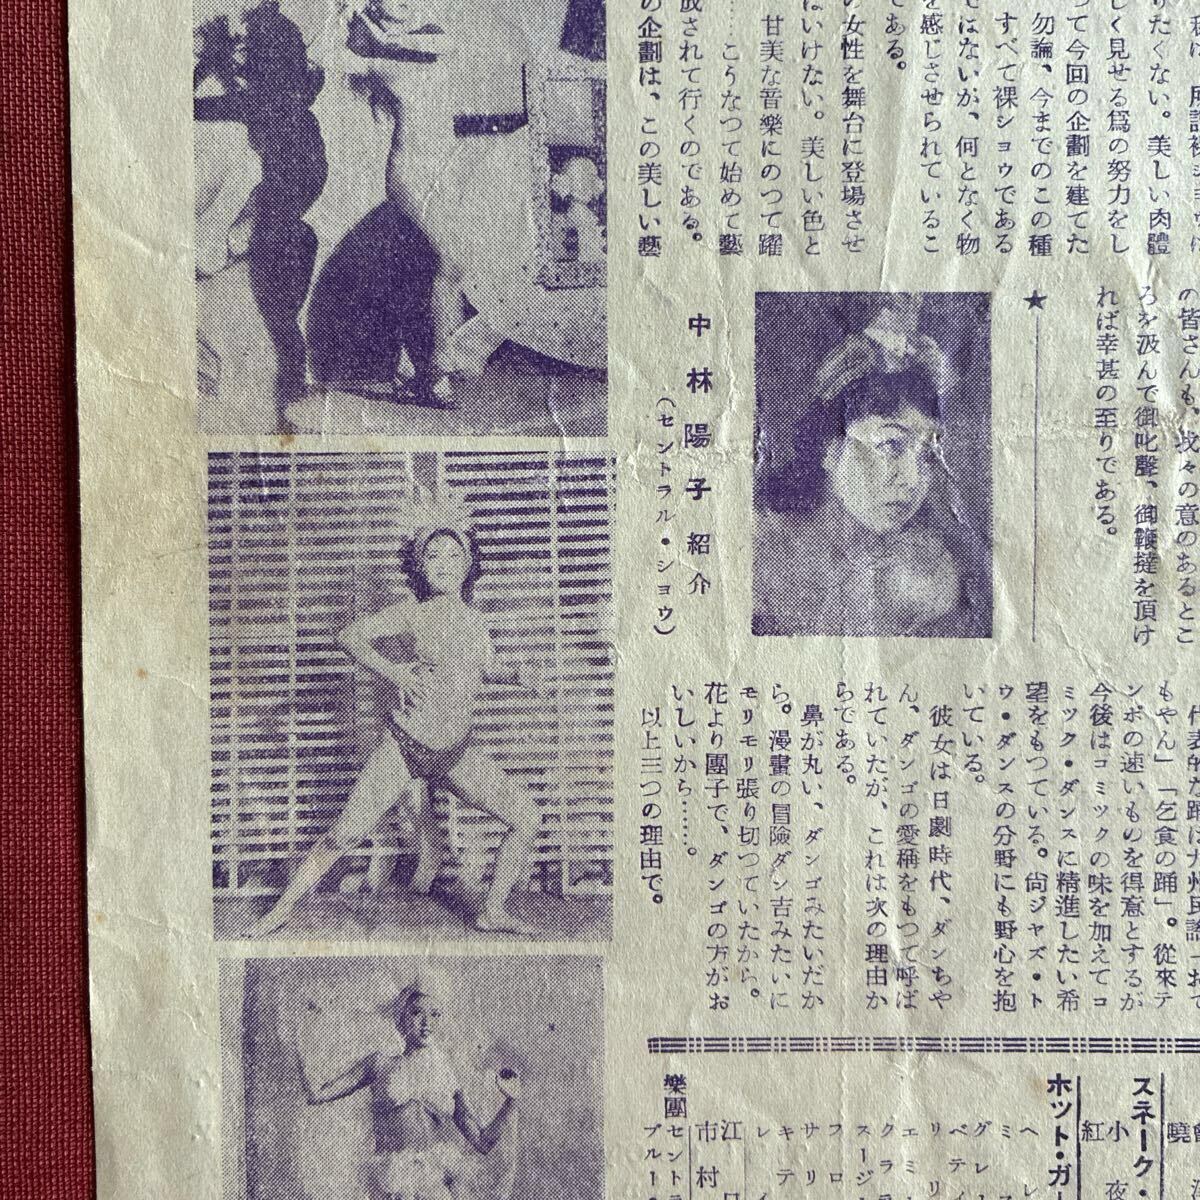 りたくない。美しい肉體
しく見せる爲の努力をし
つて今回の企劃を建てた
勿論、今までのこの種
すべて裸ショウである
ではないが、何となく物
を感じさせられているこ
である。
の女性を舞台に登場させ
はいけない。美しい色と
甘美な音樂にのつて躍
……こうなつて始めて藝
放されて行くのである。
の企劃は、この美しい藝
の皆さんも、我々の意のあるとこ
ろを汲んで御叱聲、御鞭撻を頂け
れば幸甚の至りである。
★
中林陽子紹介
(セントラル・ショウ)
代表的な踊は九州民謠「おて
もやん」「乞食の踊」。從來テ
ンポの速いものを得意とするが
今後はコミックの味を加えてコ
ミック・ダンスに精進したい希
望をもつている。尙ジャズ・ト
ウ・ダンスの分野にも野心を抱
いている。
彼女は日劇時代、ダンちや
ん、ダンゴの愛稱をもつて呼ば
れていたが、これは次の理由か
らである。
鼻が丸い、ダンゴみたいだか
ら。漫畫の冒險ダン吉みたいに
モリモリ張り切つていたから。
花より團子で、ダンゴの方がお
いしいから……。
以上三つの理由で。
スネーク・
小夜
紅
ホット・ガ
ヘレ
ミス
グレ
ベティ
リリ
エミ
クララ
スージ
フロ
サリ
キテ
レイ
江口
市村
樂團
セントラ
ブルー